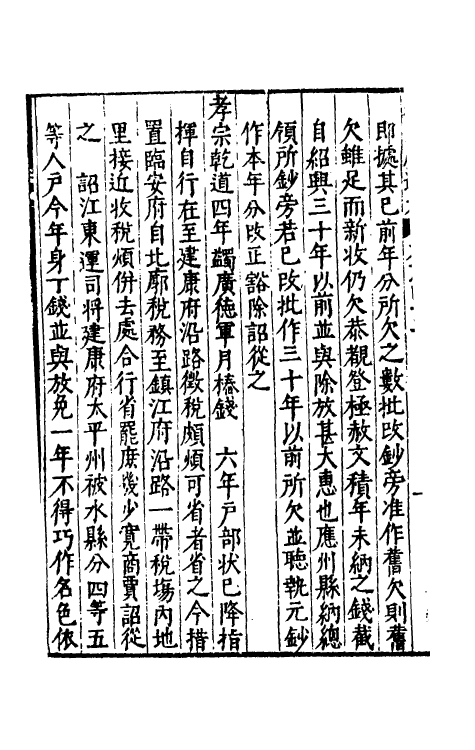 即據其已前年分所欠之數批改鈔旁准作舊欠則舊
欠雖足而新收仍欠恭觀登極赦文積年未納之錢截
自紹興三十年以前並與除放甚大惠也應州縣納總
領所鈔旁若已改批作三十年以前所欠並聽執元鈔
作本年分改正豁除詔從之
孝宗乾道四年蠲廣德軍月樁錢　六年戶部狀已降指
揮自行在至建康府沿路徵稅頗煩可省者省之今措
置臨安府自北廓稅務至鎮江府沿路一帶稅塲內地
里接近收稅煩併去處合行省罷庶幾少寬商賈詔從
之　詔江東運司將建康府太平州被水縣分四等五
等人戶今年身丁錢並與放免一年不得巧作名色依